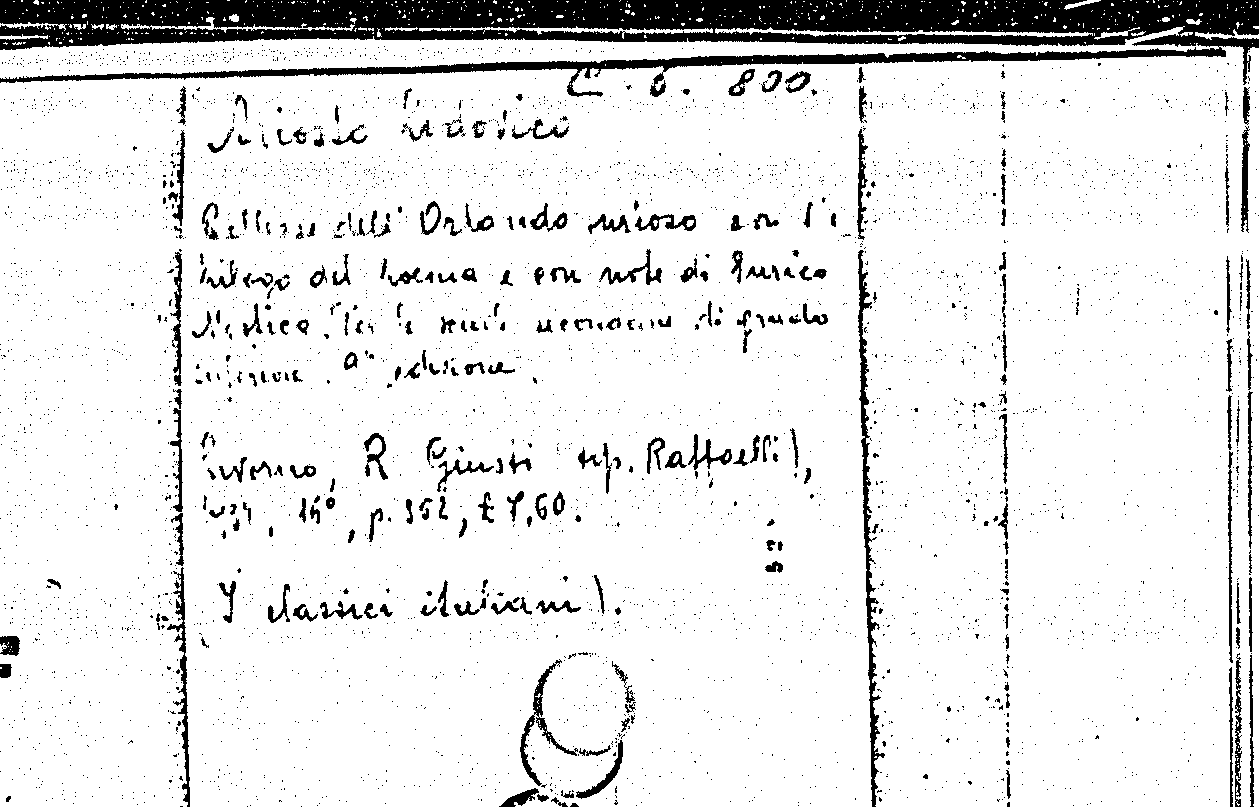 C. 6. 800.
Ariosto Ludovico
Bellezze dell' Orlando furioso con l'e
pilogo del poema e con note di Enrico
Mestica. Per le scuole secondarie di grado
inferiore. edizione.
Livorno, R. Giusti tip. Raffaelli),
16º, p. 352, £ 7,60.
I classici italiani).